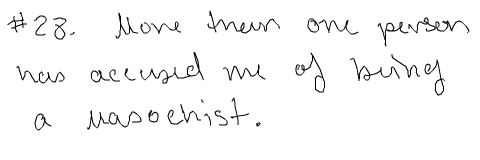 #28. More than one person
has accused me of being
a masochist.